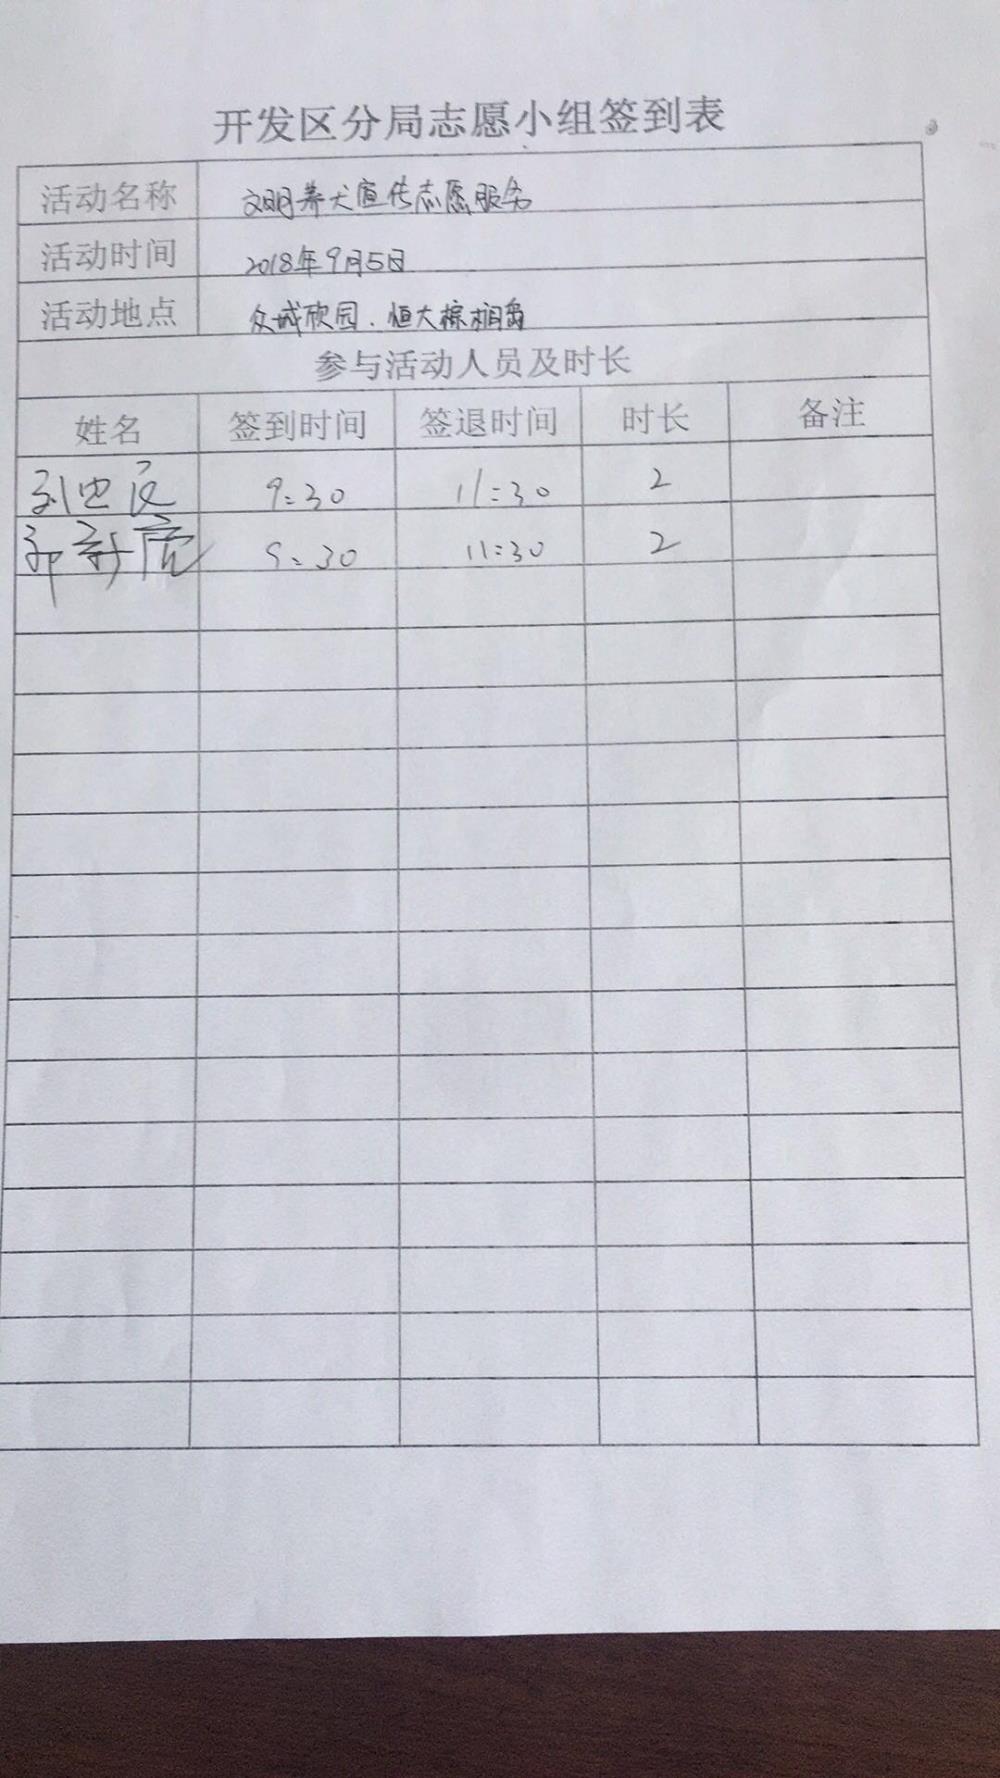 开发区分局志愿小组签到表
活动名称 文明养犬宣传志愿服务
活动时间 2018年9月5日
活动地点 众城欣园.恒大棕榈岛
参与活动人员及时长
姓名 签到时间 签退时间 时长 备注
9:30 11:30 2
9:30 11:30 2